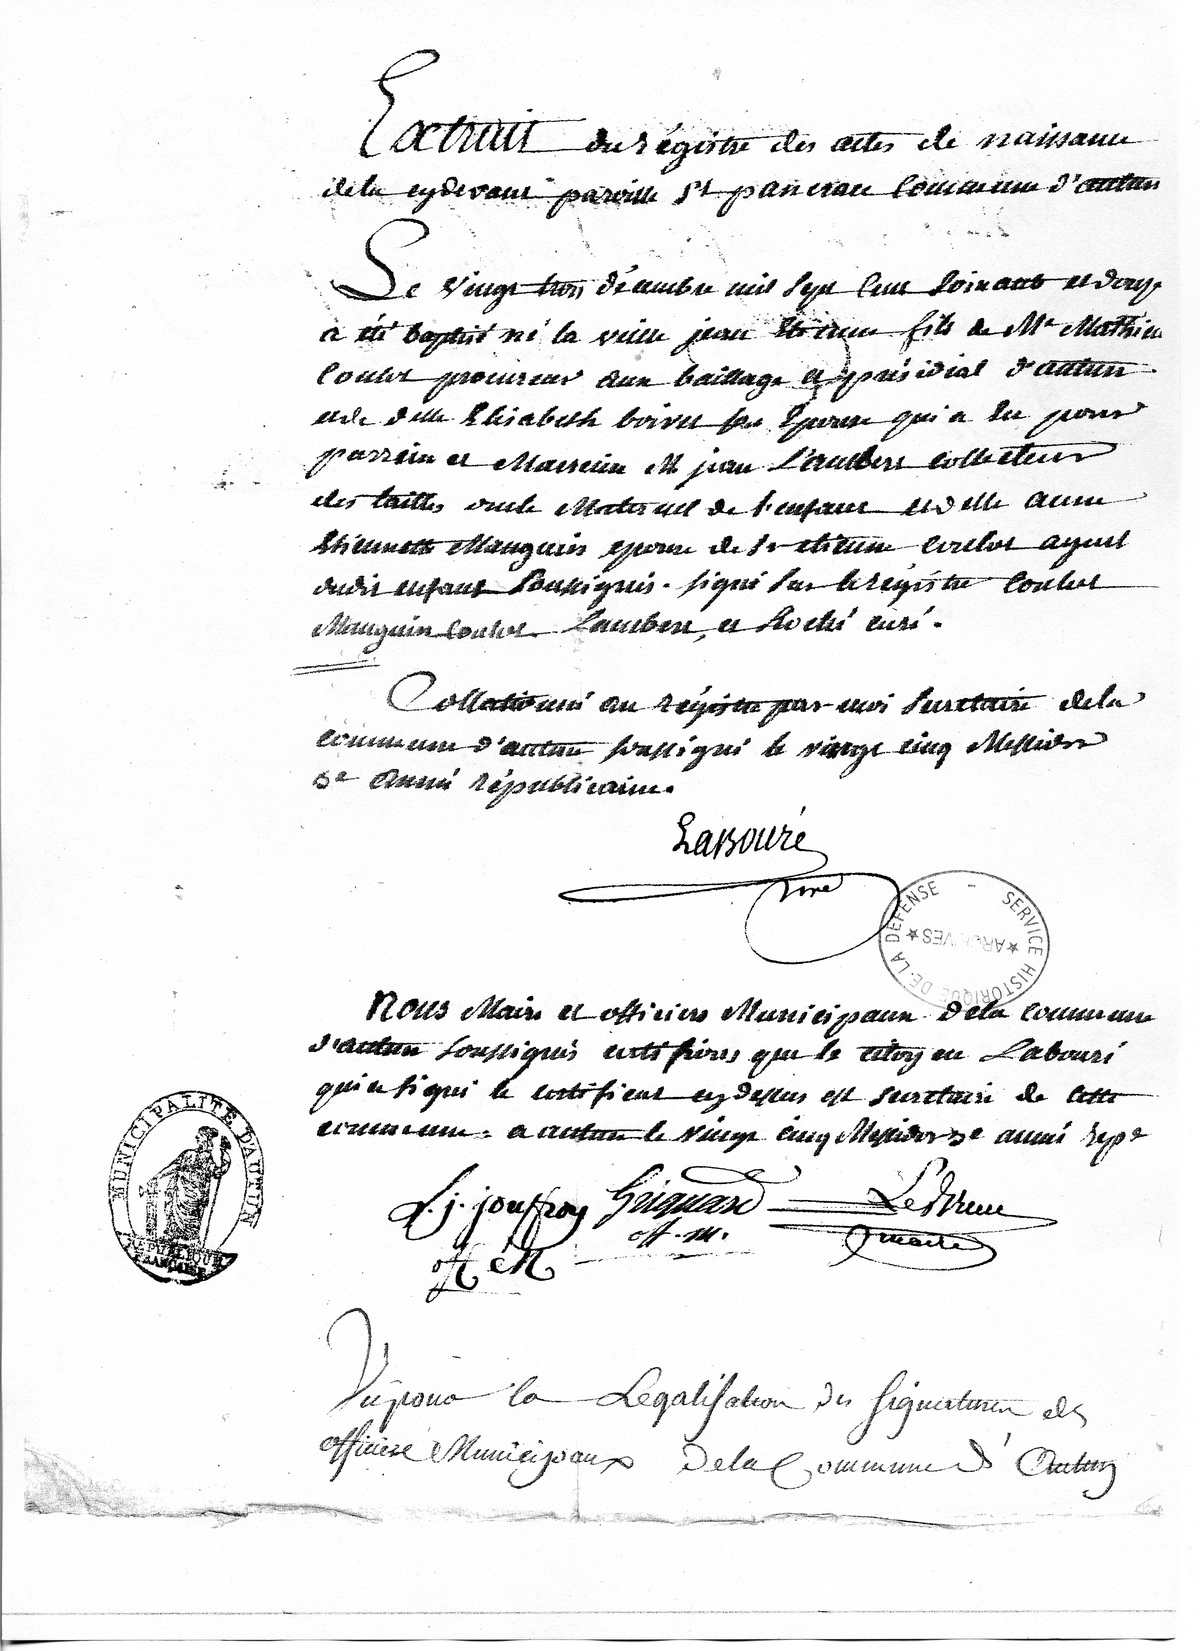 Extrait du régistre des actes de naissance
de la cydevant paroisse St pancrace Commune d'autun
Le vingt trois décembre mil sept cent soixante et douze
a été baptisé né la veille jean Etienne fils de Me Mathieu
Coulot procureur aux bailliage et présidial d'autun
et de delle Elisabeth boivet son Epouse qui a eu pour
parrein et Marreine M jean Laubere collecteur
des tailles oncle Maternel de l'enfant et delle anne
Etiennette Mauguin epouse de Sr etienne Coulot ayeul
dudit enfant Soussignés. signé sur le régistre Coulot
Mauguin Coulot Laubere, et Roché curé.
Collationné au régistre par moi Secretaire de la
commune d'autun soussigné le vingt cinq Messidor
3e Année républicaine.
LaBouré
sre
SERVICE HISTORIQUE DE LA DEFENSE - ★ARCHIVES★
Nous Maire et officiers Municipaux de la Commune
d'autun Soussignés certifions que le citoyen Labouré
qui a signé le certificat cydessus est Secretaire de cette
commune. a autun le vingt cinq Messidor 3e année repe
MUNICIPALITE D'AUTUN
REPUBLIQUE
FRANCAISE
L. j. jouffroy Guignard
off. m.
maire
off M
Vu pour la Legalisation des Signatures des
officiers Municipaux De la Commune d'Autun